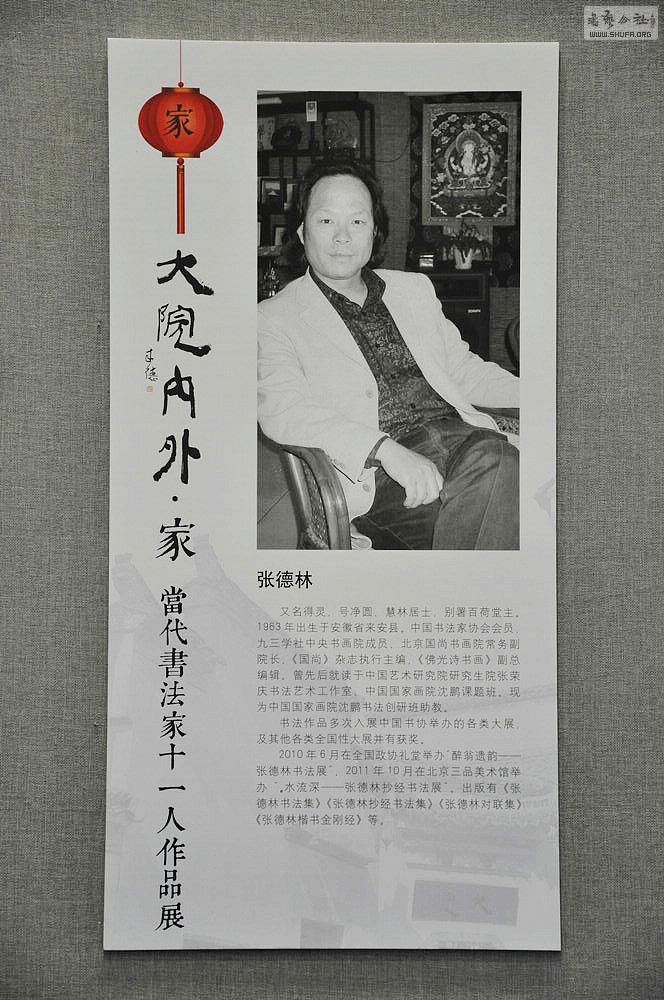 WWW.SHUFA.ORG
家
大院内外·家
當代書法家十一人作品展
张德林
又名得灵，号净圆、慧林居士，别署百荷堂主。
1963年出生于安徽省来安县。中国书法家协会会员、
九三学社中央书画院成员、北京国尚书画院常务副
院长、《国尚》杂志执行主编、《佛光诗书画》副总
编辑。曾先后就读于中国艺术研究院研究生院张荣
庆书法艺术工作室、中国国家画院沈鹏课题班。现
为中国国家画院沈鹏书法创研班助教。
书法作品多次入展中国书协举办的各类大展，
及其他各类全国性大展并有获奖。
2010年6月在全国政协礼堂举办“醉翁遗韵——
张德林书法展”，2011年10月在北京三品美术馆举
办“水流深——张德林抄经书法展”。出版有《张
德林书法集》《张德林抄经书法集》《张德林对联集》
《张德林楷书金刚经》等。